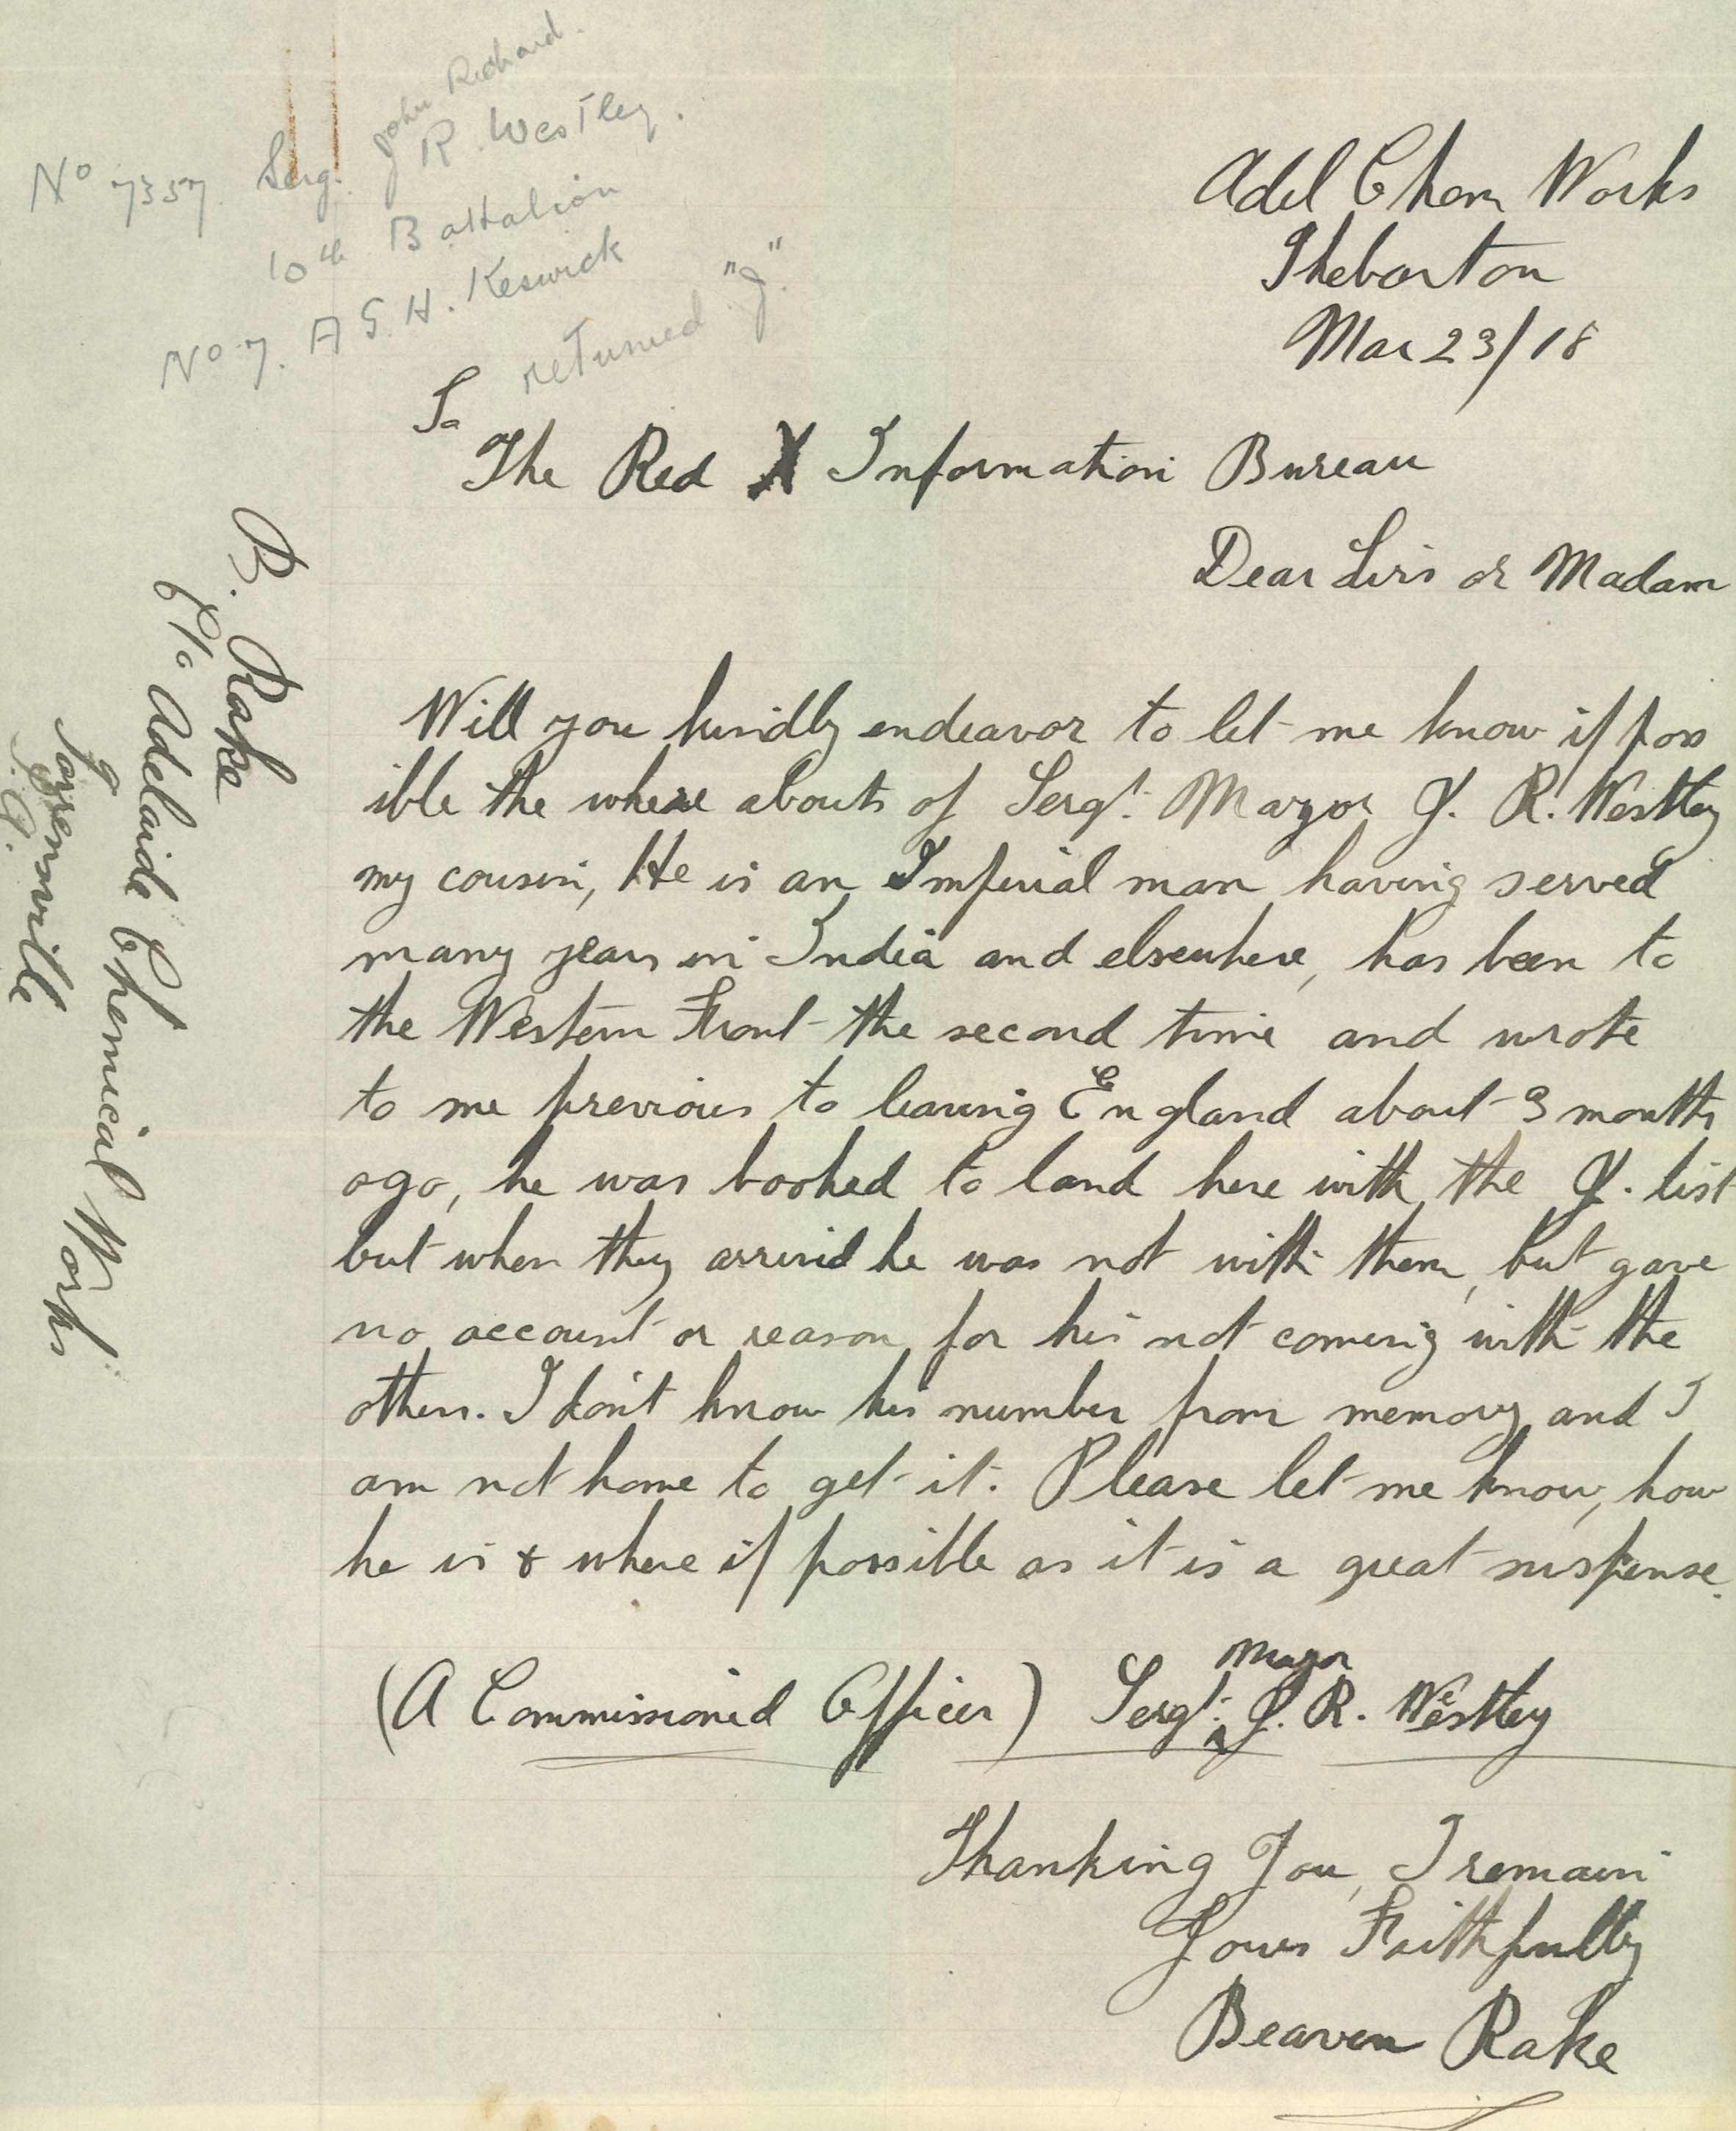 John Richard.
No 7357. Serg. R. Westley.
10th Battalion
No 7. A G. H. Keswick
returned "J."
Adel Chem Works
Thebarton
Mar 23/18
To
The Red X Information Bureau
Dear Sirs or Madam
Will you kindly endeavor to let me know if poss
ible the where abouts of Sergt. Mayor J. R. Westley
my cousin, He is an Imperial man having served
many years in India and elsewhere, has been to
the Western Front the second time and wrote
to me previous to leaving England about 3 months
ago, he was booked to land here with the J. list
but when they arrived he was not with them, but gave
no account or reason for his not coming with the
others. I don't know his number from memory and I
am not home to get it. Please let me know, how
he is & where if possible as it is a great suspense.
(A Commissioned Officer) Sergt. Mayor J. R. Westley
Thanking You, I remain
Yours Faithfully
Beaven Rake
B. Rake
C/o Adelaide Chemical Works
Torrensville